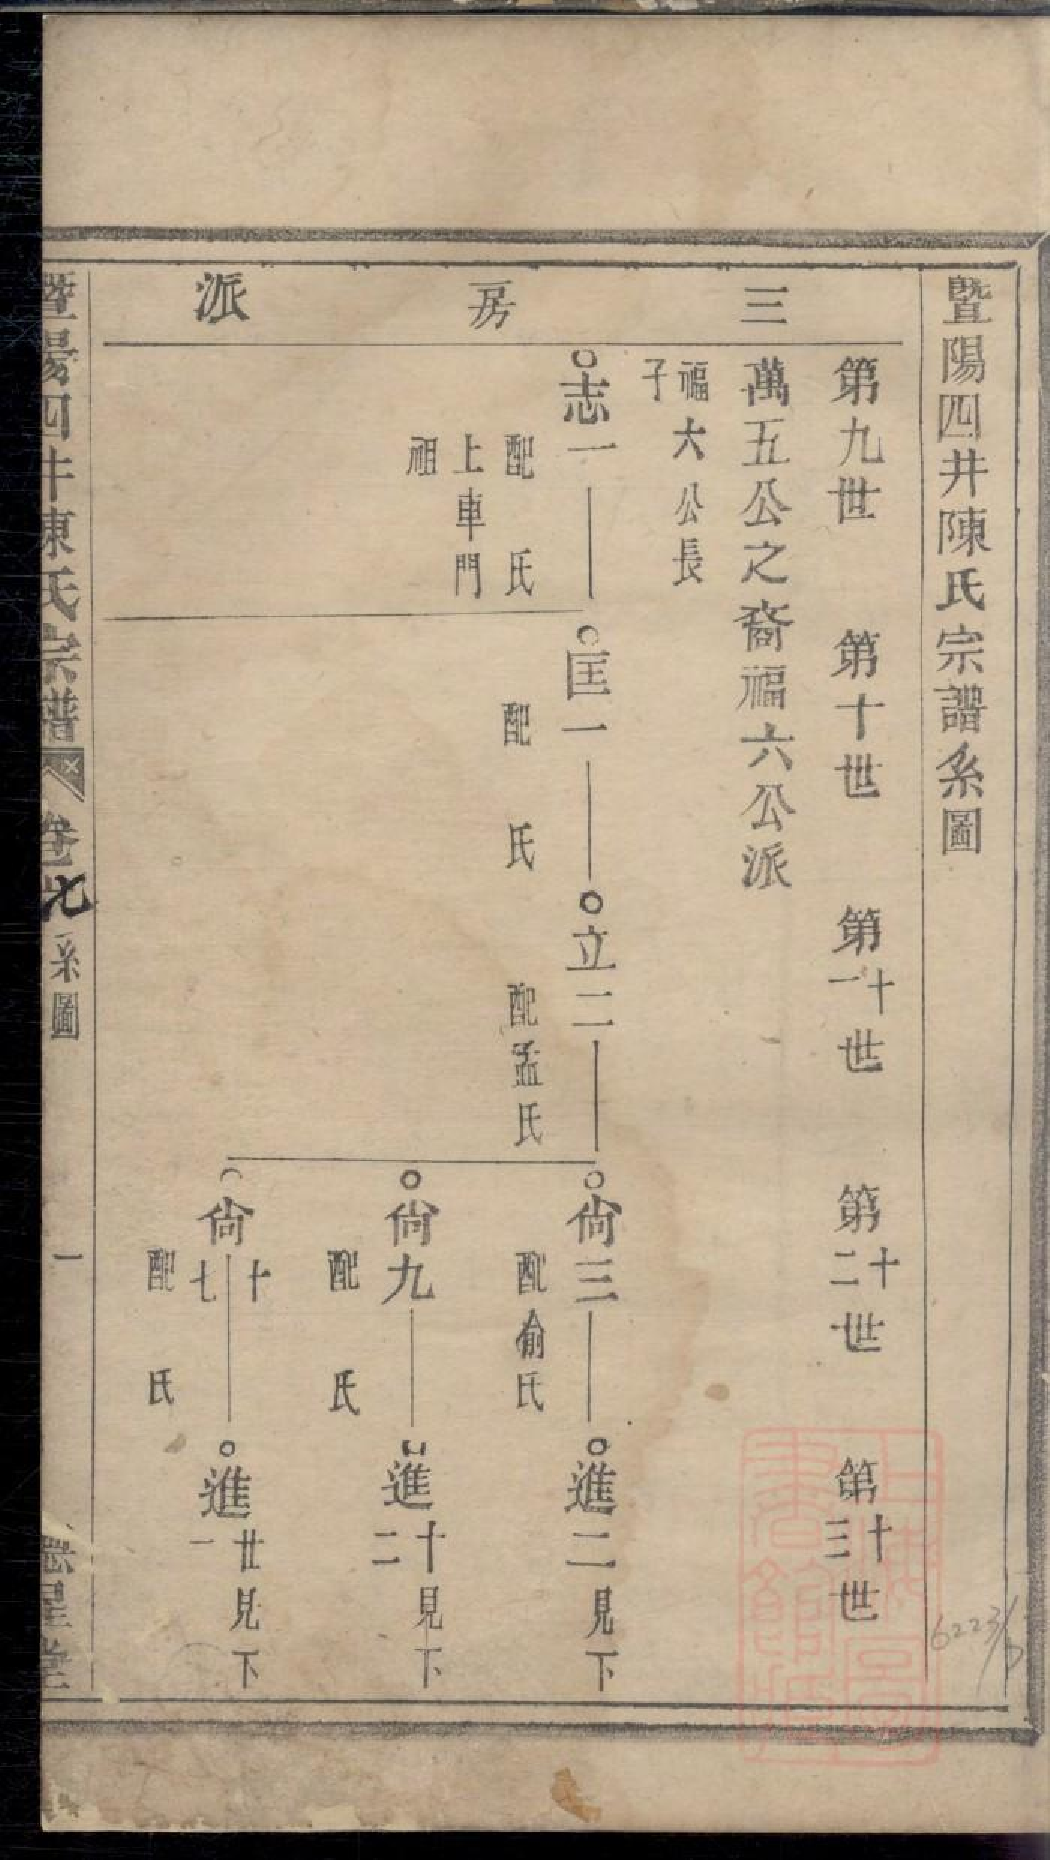 暨陽四井陳氏宗譜系圖
三房派
第九世 第十世 第十一世 第十二世 第十三世
萬五公之裔福六公派
福六公長子
志一
配 氏
上車門祖
匡一
配 氏
立二
配孟氏
尙三
配俞氏
進二見下
尙九
配 氏
進十二見下
尙十七
配 氏
進廿一見下
暨陽四井陳氏宗譜 卷七 系圖 一
星堂
6223